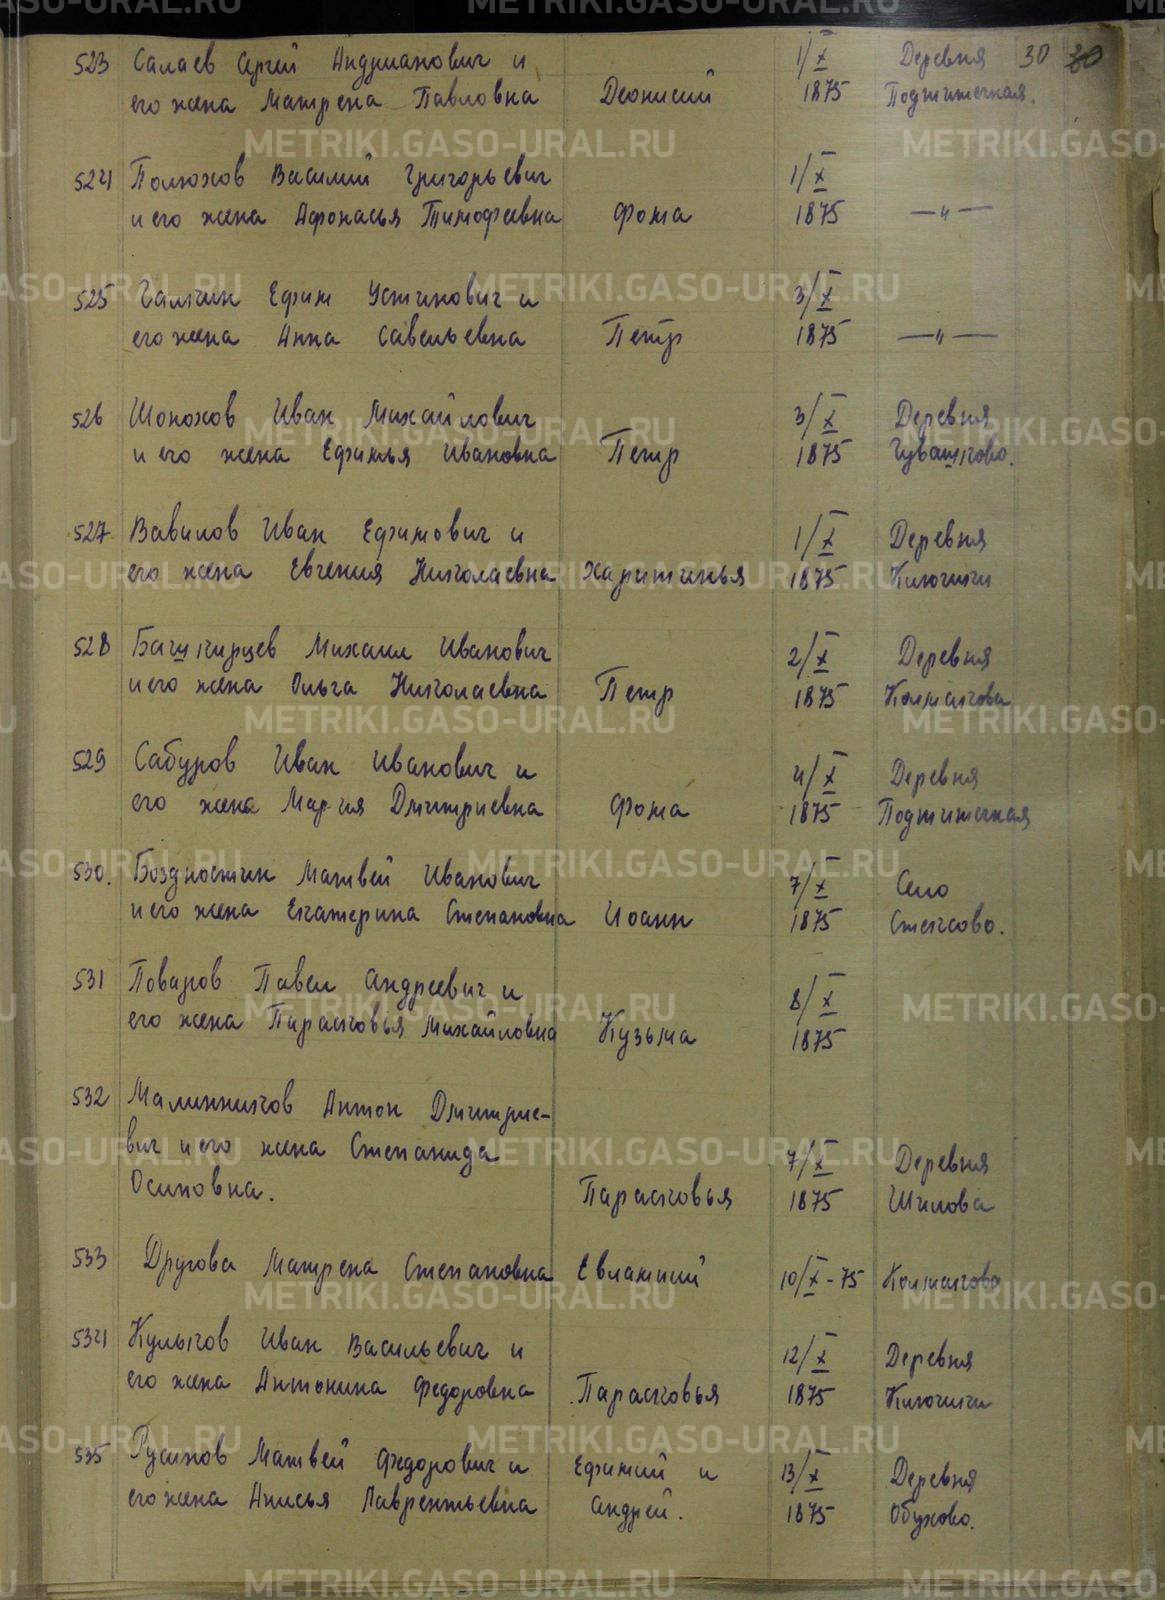 30 30
523 Салаев Сергей Андрианович и 1/X Деревня
его жена Матрена Павловна Деонисий 1875 Подтитечная.
524 Полюхов Василий Григорьевич 1/X
и его жена Афонасья Тимофеевна Фома 1875 —〃—
525 Галкин Ефим Устинович и 3/X
его жена Анна Савельевна Петр 1875 —〃—
526 Шонохов Иван Михайлович 3/X Деревня
и его жена Ефимья Ивановна Петр 1875 Чувашково.
527 Вавилов Иван Ефимович и 1/X Деревня
его жена Евгения Николаевна Харитинья 1875 Ключики
528 Башкирцев Михаил Иванович 2/X Деревня
и его жена Ольга Николаевна Петр 1875 Колмакова
529 Сабуров Иван Иванович и 4/X Деревня
его жена Мария Дмитриевна Фома 1875 Подтитечная
530. Матвей Иванович 7/X Село
и его жена Екатерина Степановна Иоанн 1875
531 Поваров Павел Андреевич и 8/X
его жена Парасковья Михайловна Кузьма 1875
532 Малинников Антон Дмитрие-
вич и его жена Степанида 7/X Деревня
Осиповна. Парасковья 1875 Шилова
533 Другова Матрена Степановна Евлампий 10/X-75 Колмакова
534 Кулыков Иван Васильевич и 12/X Деревня
его жена Антонина Федоровна Парасковья 1875 Ключики
535 Русинов Матвей Федорович и Ефимий и 13/X Деревня
его жена Анисья Лаврентьевна Андрей. 1875 Обухово.
METRIKI.GASO-URAL.RU